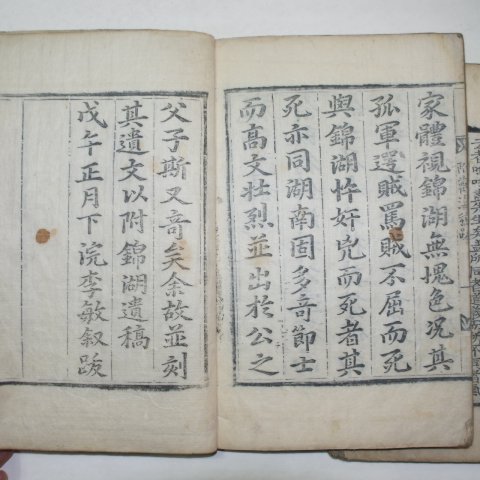 家體視錦湖無塊色况其
孤軍遌賊罵賊不屈而死
與錦湖忤奸兇而死者其
死亦同湖南固多奇節士
而高文壯烈並出於公之
父子斯又竒矣余故並刻
其遺文以附錦湖遺稿
戊午正月下浣李敏叙跋